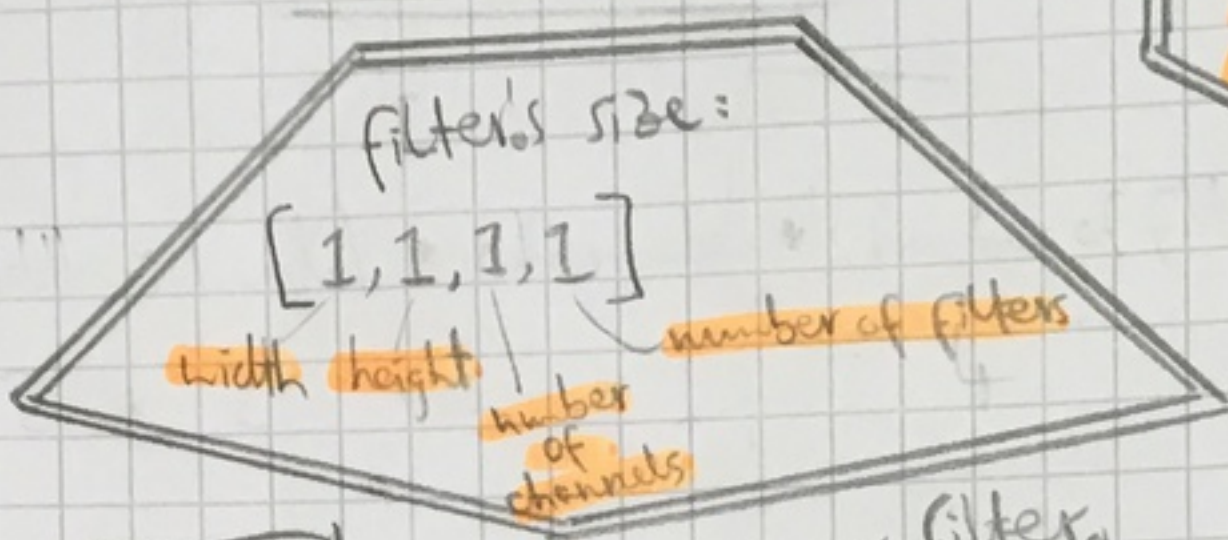 filter's size:
[1, 1, 1, 1]
width height number of filters
number
of
channels
filter